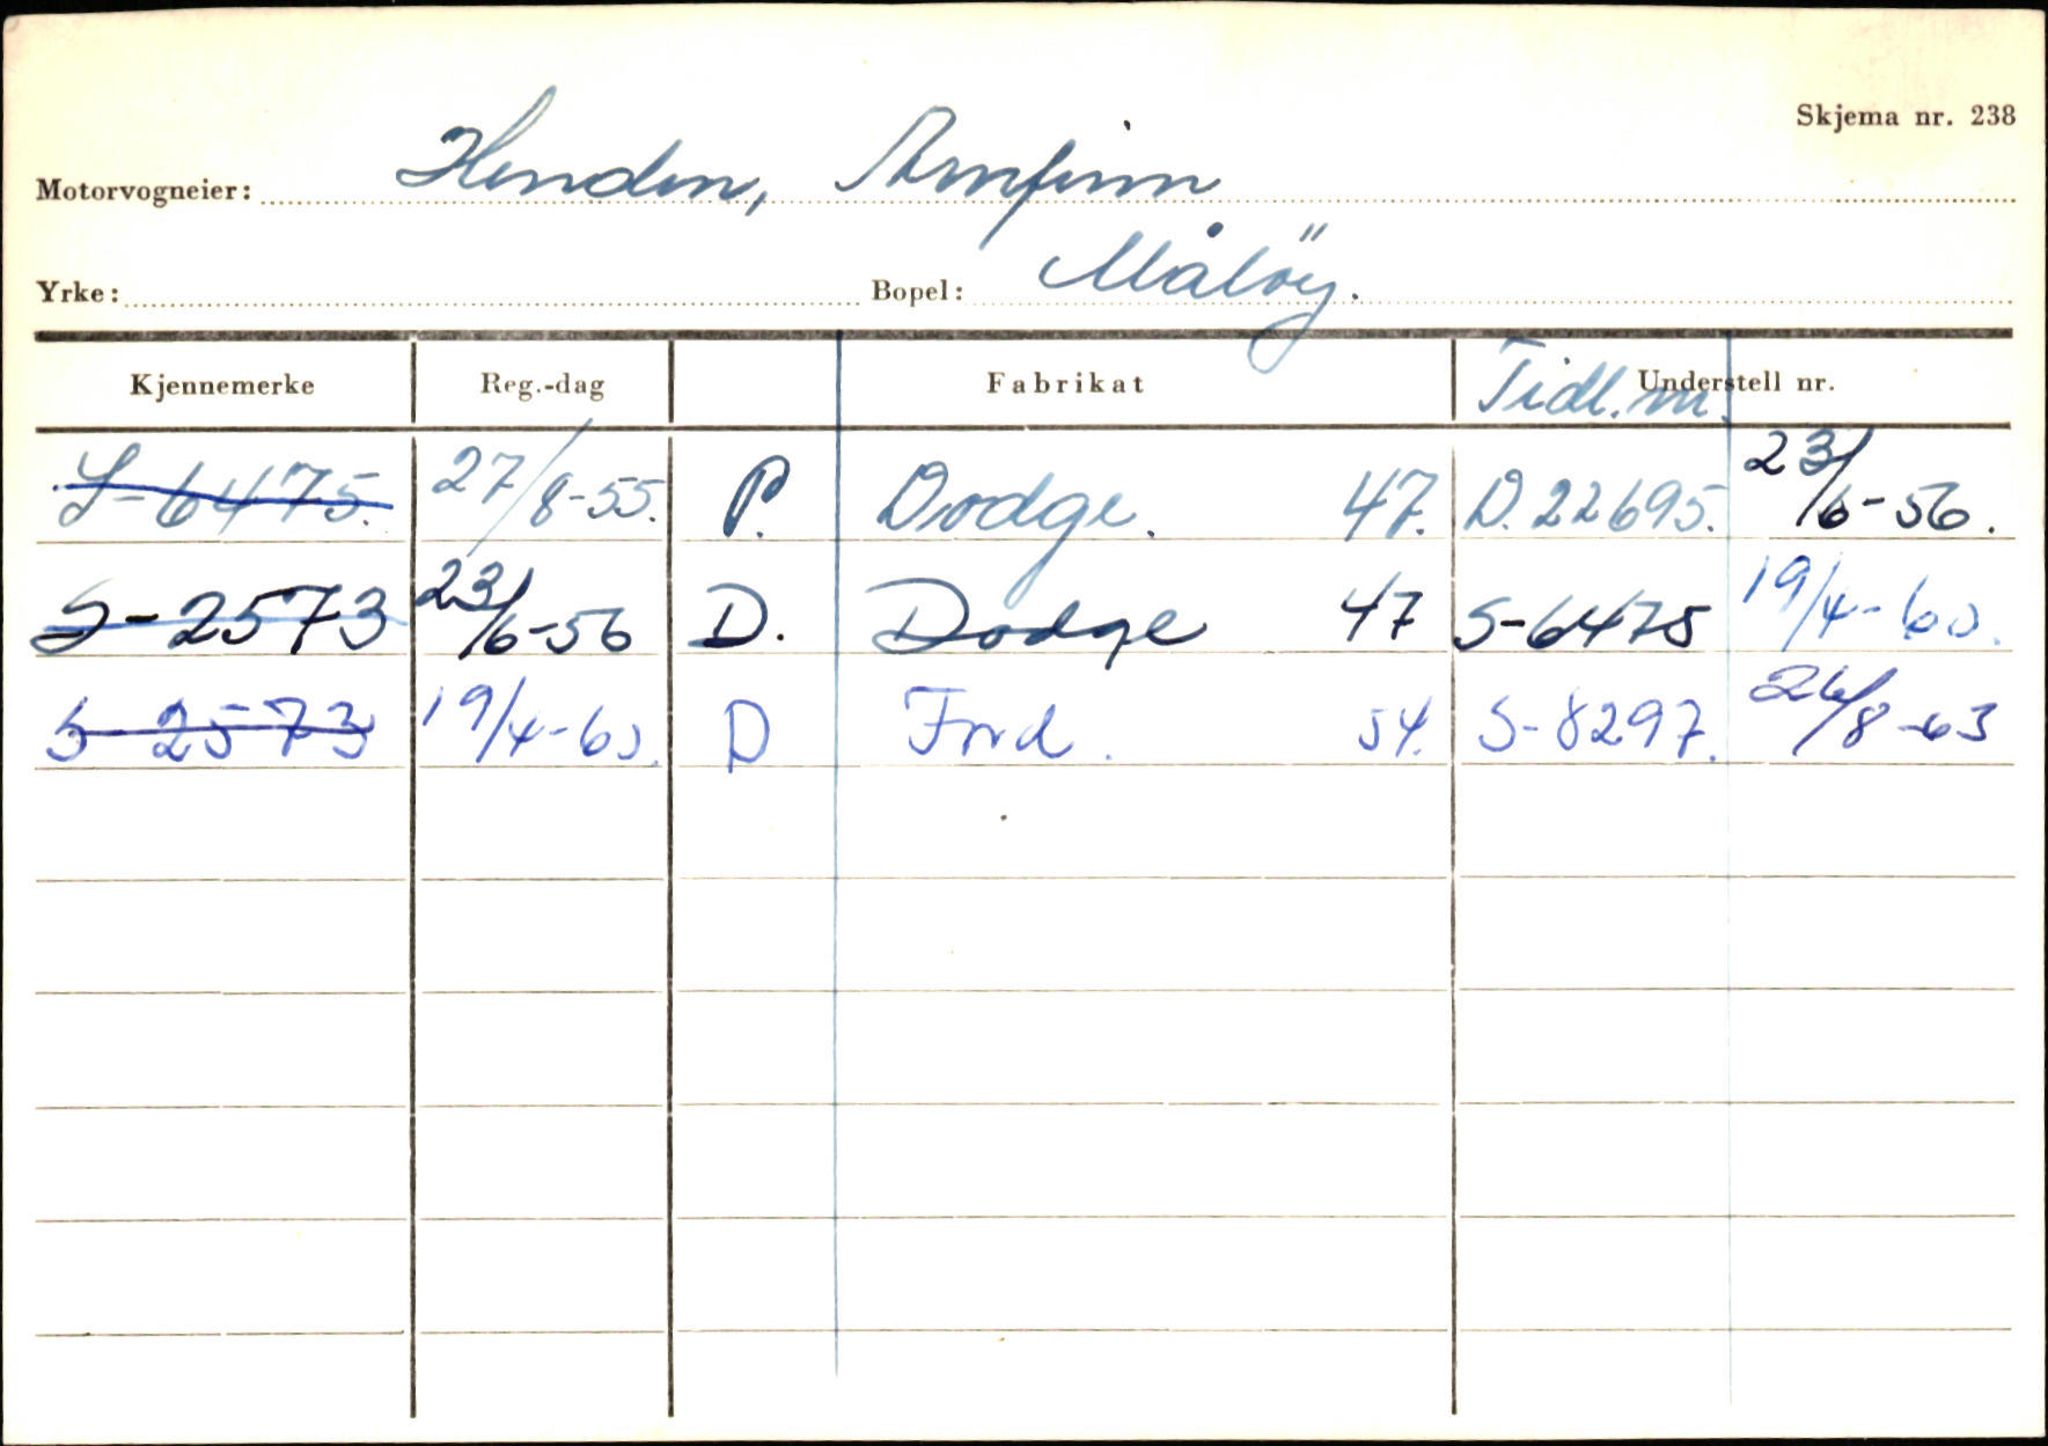 Skjema nr. 238
Motorvogneier: Henden, Arnfinn
Yrke: Bopel: Måløy.
Kjennemerke Reg.-dag Fabrikat Tidl. nr. Understell nr.
S-6475. 27/8-55. P. Dodge. 47. D. 22695. 23/6-56.
S-2573 23/6-56 D. Dodge 47 S-6475 19/4-60.
S-2573 19/4-60. D Ford. 54. S-8297. 26/8-63